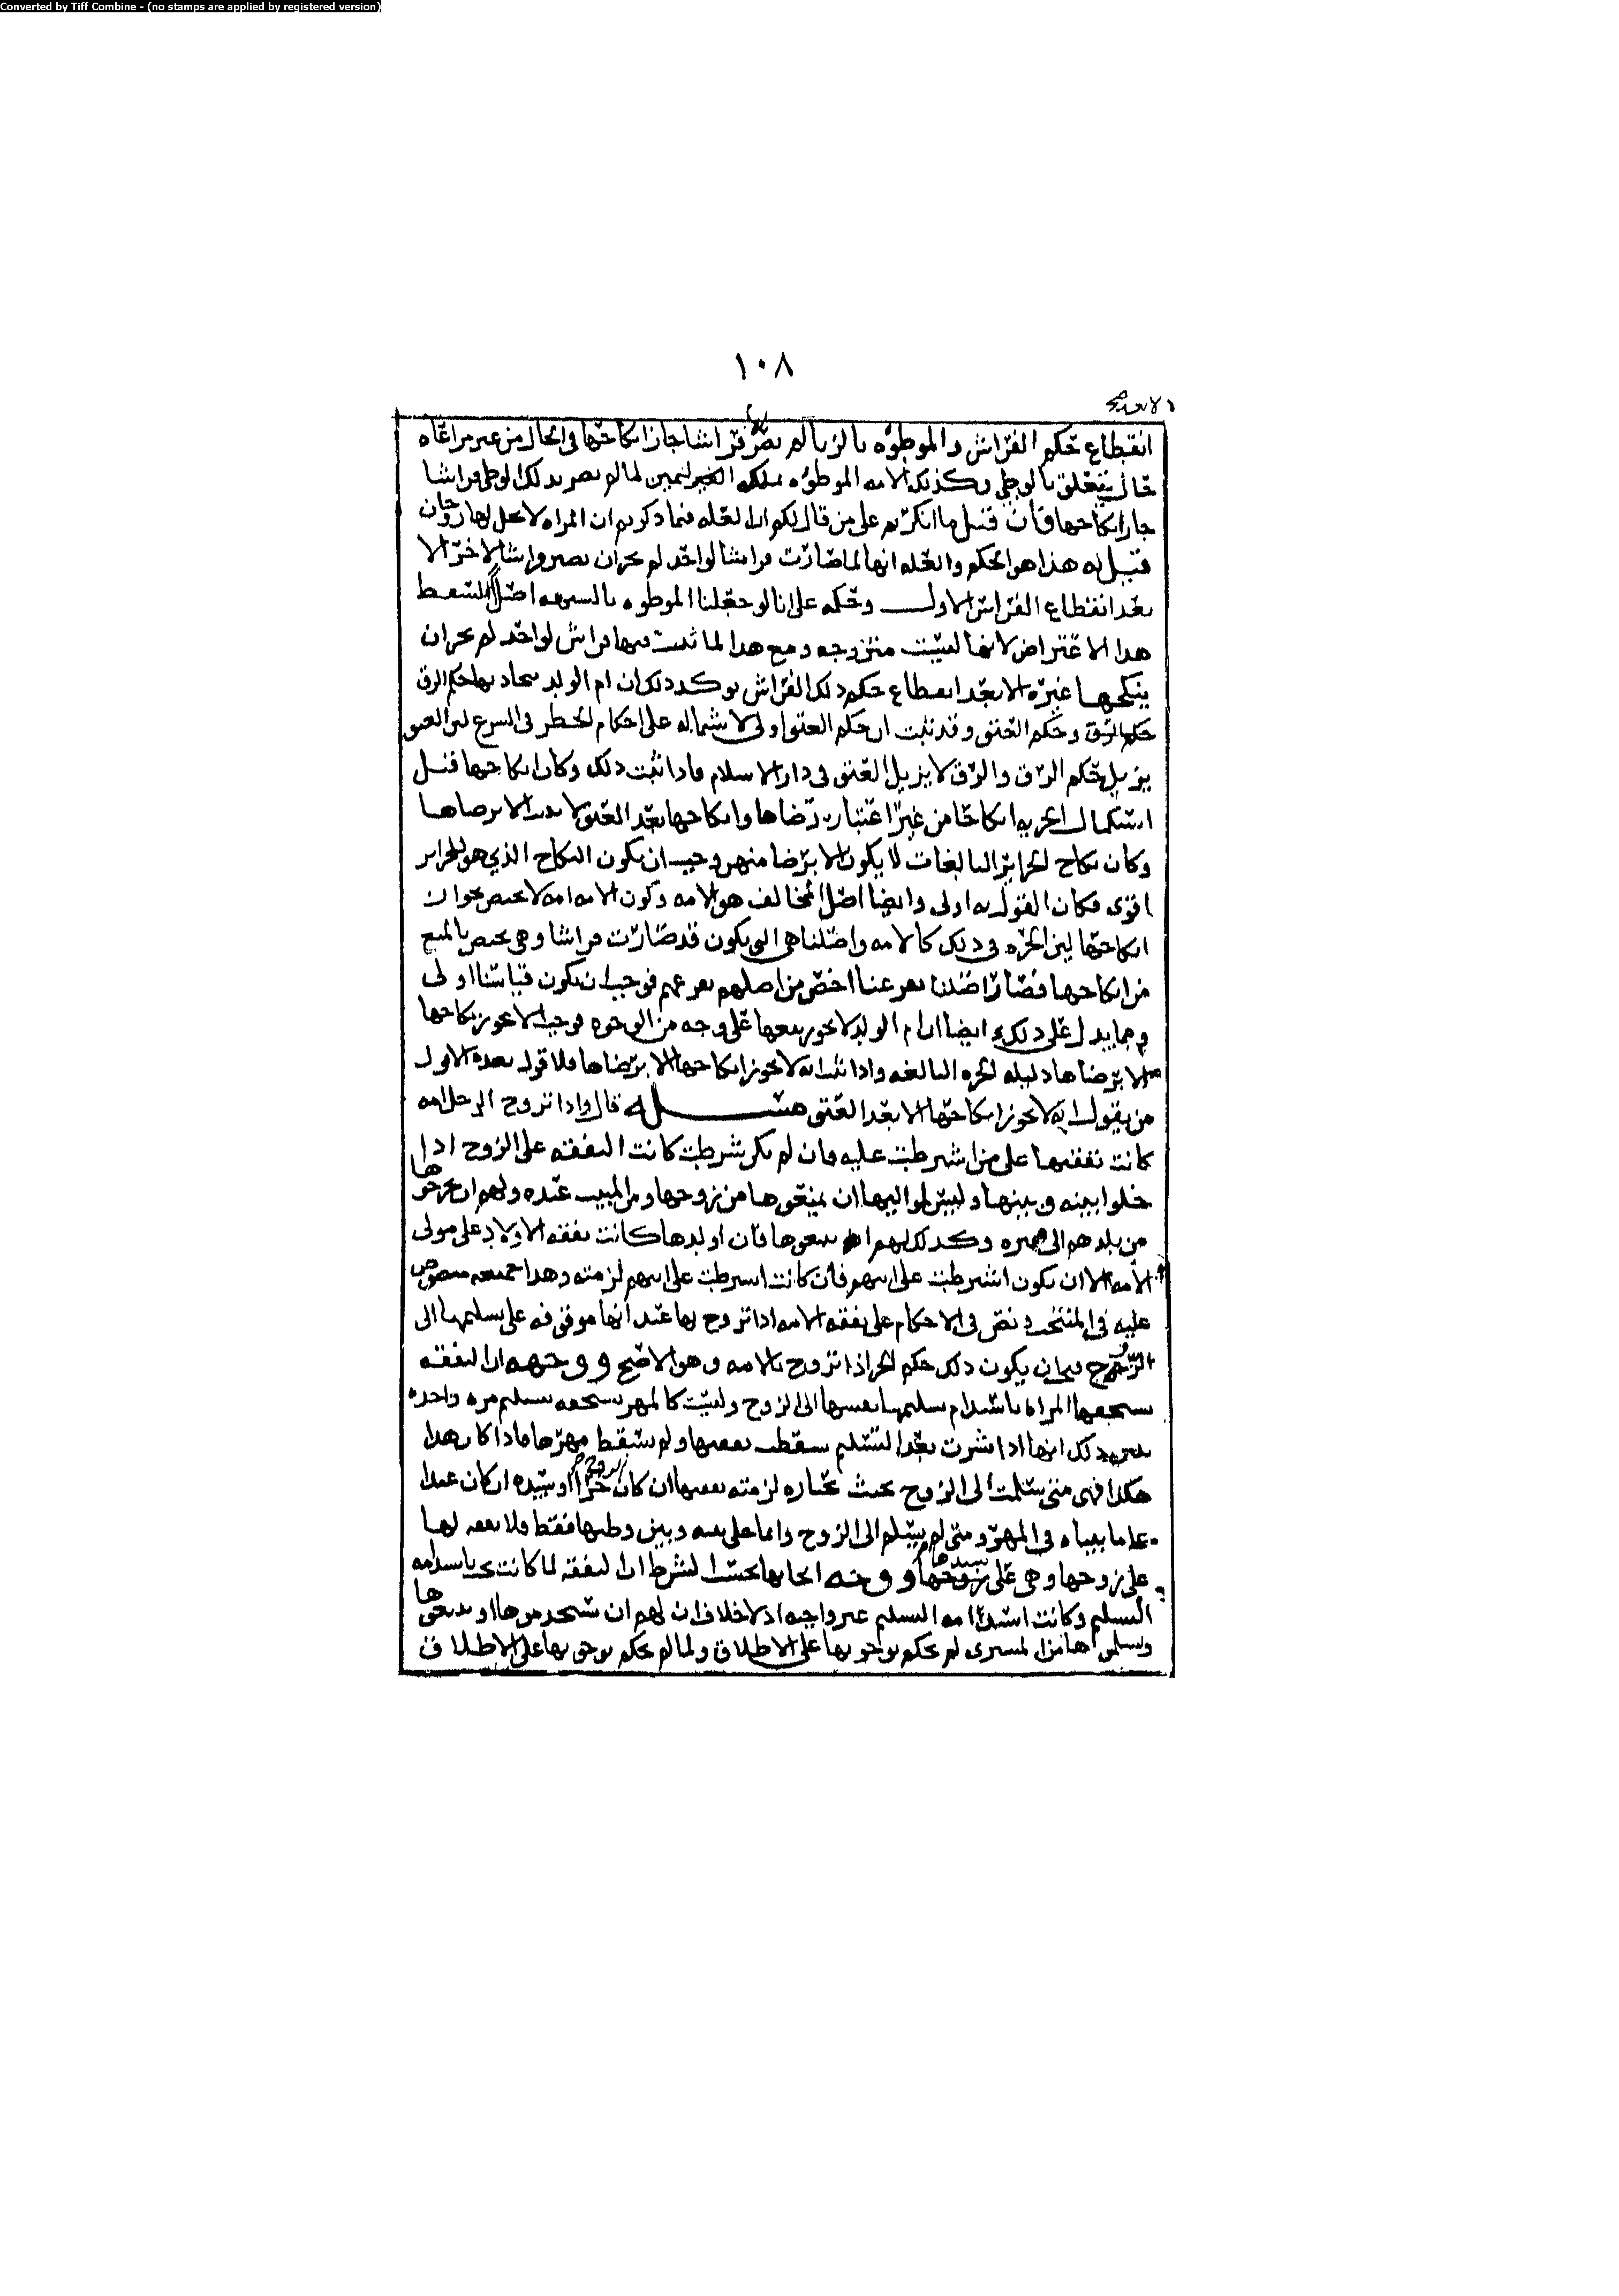 Converted by Tiff Combine - (no stamps are applied by registered version)
١٠٨
الا بعد صح
انقطاع حكم الفراش والموطوه بالزنا لم تصر فراشا جاز انكاحها في الحال من غير مراعاه
حال يتعلق بالوطي وكذلك الامه الموطوه بملك اليمين لما لم تصر بذلك الوطي فراشا
جاز انكاحها فان قيل ما انكرتم على من قال لكم ان العله فيما ذكرتم ان المراه لا يحل لها زوجان
قيل له هذا هو الحكم والعله انها لما صارت فراشا لواحد لم يجز ان تصير فراشا لاخر الا
بعد انقطاع الفراش الاول وحكمه على انا لو جعلنا الموطوه بالشبهه اصلا لسقط
هذا الاعتراض لانها ليست متزوجه ومع هذا لما ثبت فيها فراش لواحد لم يجز ان
ينكحها غيره الا بعد انقطاع حكم ذلك الفراش يوكد ذلك ان ام الولد يتجاذبها حكم الرق
وحكم العتق وقد ثبت ان حكم العتق اولى لاشتماله على احكام الحظر في الشرع لان العتق
يزيل حكم الرق والرق لا يزيل العتق في دار الاسلام فاذا ثبت ذلك وكان انكاحها قبل
استكمال الحريه انكاحا من غير اعتبار رضاها وانكاحها بعد العتق لا يثبت الا برضاها
وكان نكاح الحراير البالغات لا يكون الا برضا منهن وجب ان يكون النكاح الذي هو للحراير
اقوى فكان القول به اولى وايضا اصل المخالف هو الامه وكون الامه امه لا يختص بجواز
انكاحها لان الحره في ذلك كالامه واصلنا هي التي تكون قد صارت فراشا وهي تختص بالمنع
من انكاحها فصار اصلنا بفرعنا اخص من اصلهم بفرعهم فوجب ان يكون قياسنا اولى
ومما يدل على ذلك ايضا ان ام الولد لا يجوز بيعها على وجه من الوجوه فوجب الا يجوز نكاحها
الا برضاها دليله الحره البالغه واذا ثبت انه لا يجوز انكاحها الا برضاها فلا قول بعده الا قول
من يقول انه لا يجوز انكاحها الا بعد العتق مسئله قال واذا تزوج الرجل امه
كانت نفقتها على من اشترطت عليه فان لم يكن شرطت كانت النفقه على الزوج اذا
خلوا بينه وبينها وليس لمواليها ان يمنعوها من زوجها ومن المبيت عنده ولهم ان يخرجوها
من بلدهم الى غيره وكذلك لهم ان يبيعوها فان اولدها كانت نفقه الاولاد على مولى
الامه الا ان يكون اشترطت على ابيهم فان كانت اشترطت على ابيهم لزمته وهذا جميعه منصوص
عليه في المنتخب ونص في الاحكام على نفقه الامه اذا تزوج بها عبد انها موقوفه على تسليمها الى
الزوج فيجب ان يكون ذلك حكم الحر اذا تزوج بالامه وهو الاصح ووجهه ان النفقه
تستحقها المراه باستدام تسليمها نفسها الى الزوج وليست كالمهر يستحقه بتسليم مره واحده
يبين ذلك انها اذا نشزت بعد التسليم سقطت نفقتها ولم يسقط مهرها فاذا كان هذا
هكذا فهي متى سلمت الى الزوج بحيث يختاره لزمته نفقتها ان كان الزوج حرا او سيده ان كان عبدا
على ما بيناه في المهر ومتى لم تسلم الى الزوج وانما خلي بينه وبين وطيها فقط فلا نفقه لها
على زوجها وهي على سيدها ووجه ايجابها بحسب الشرط ان النفقه لما كانت تجب باستدامه
التسليم وكانت استدامه التسليم غير واجبه اذ لا خلاف ان لهم ان يستخدموها او يبيعوها
ويسلموها من المشتري لم نحكم بوجوبها على الاطلاق ولما لم نحكم بوجوبها على الاطلاق